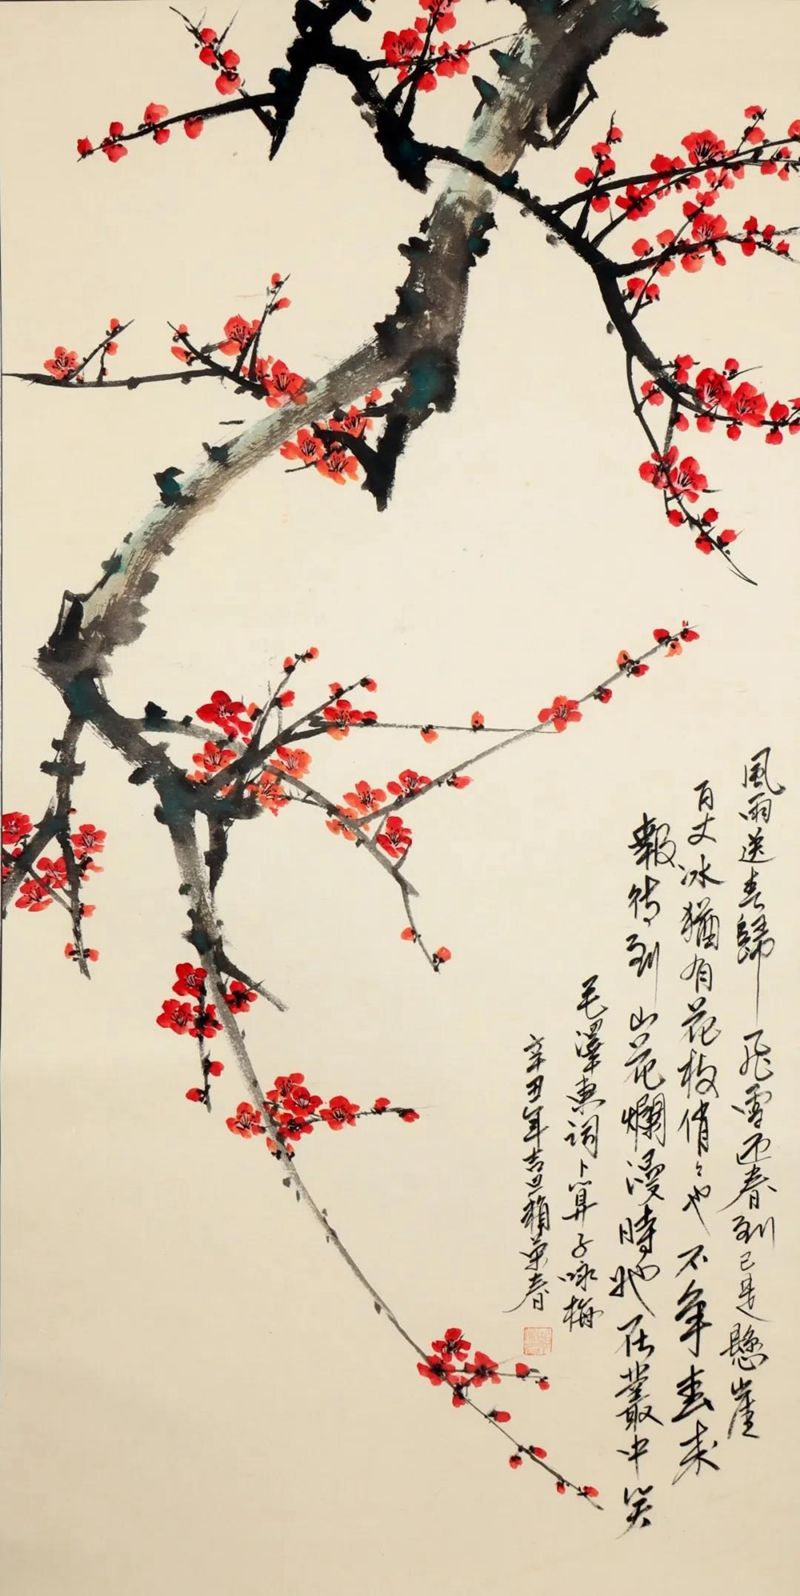 風雨送春歸飛雪迎春到已是懸崖
百丈冰猶有花枝俏々也不争春来
報待到山花爛漫時她在叢中笑
毛澤東詞卜算子咏梅
辛丑年吉旦